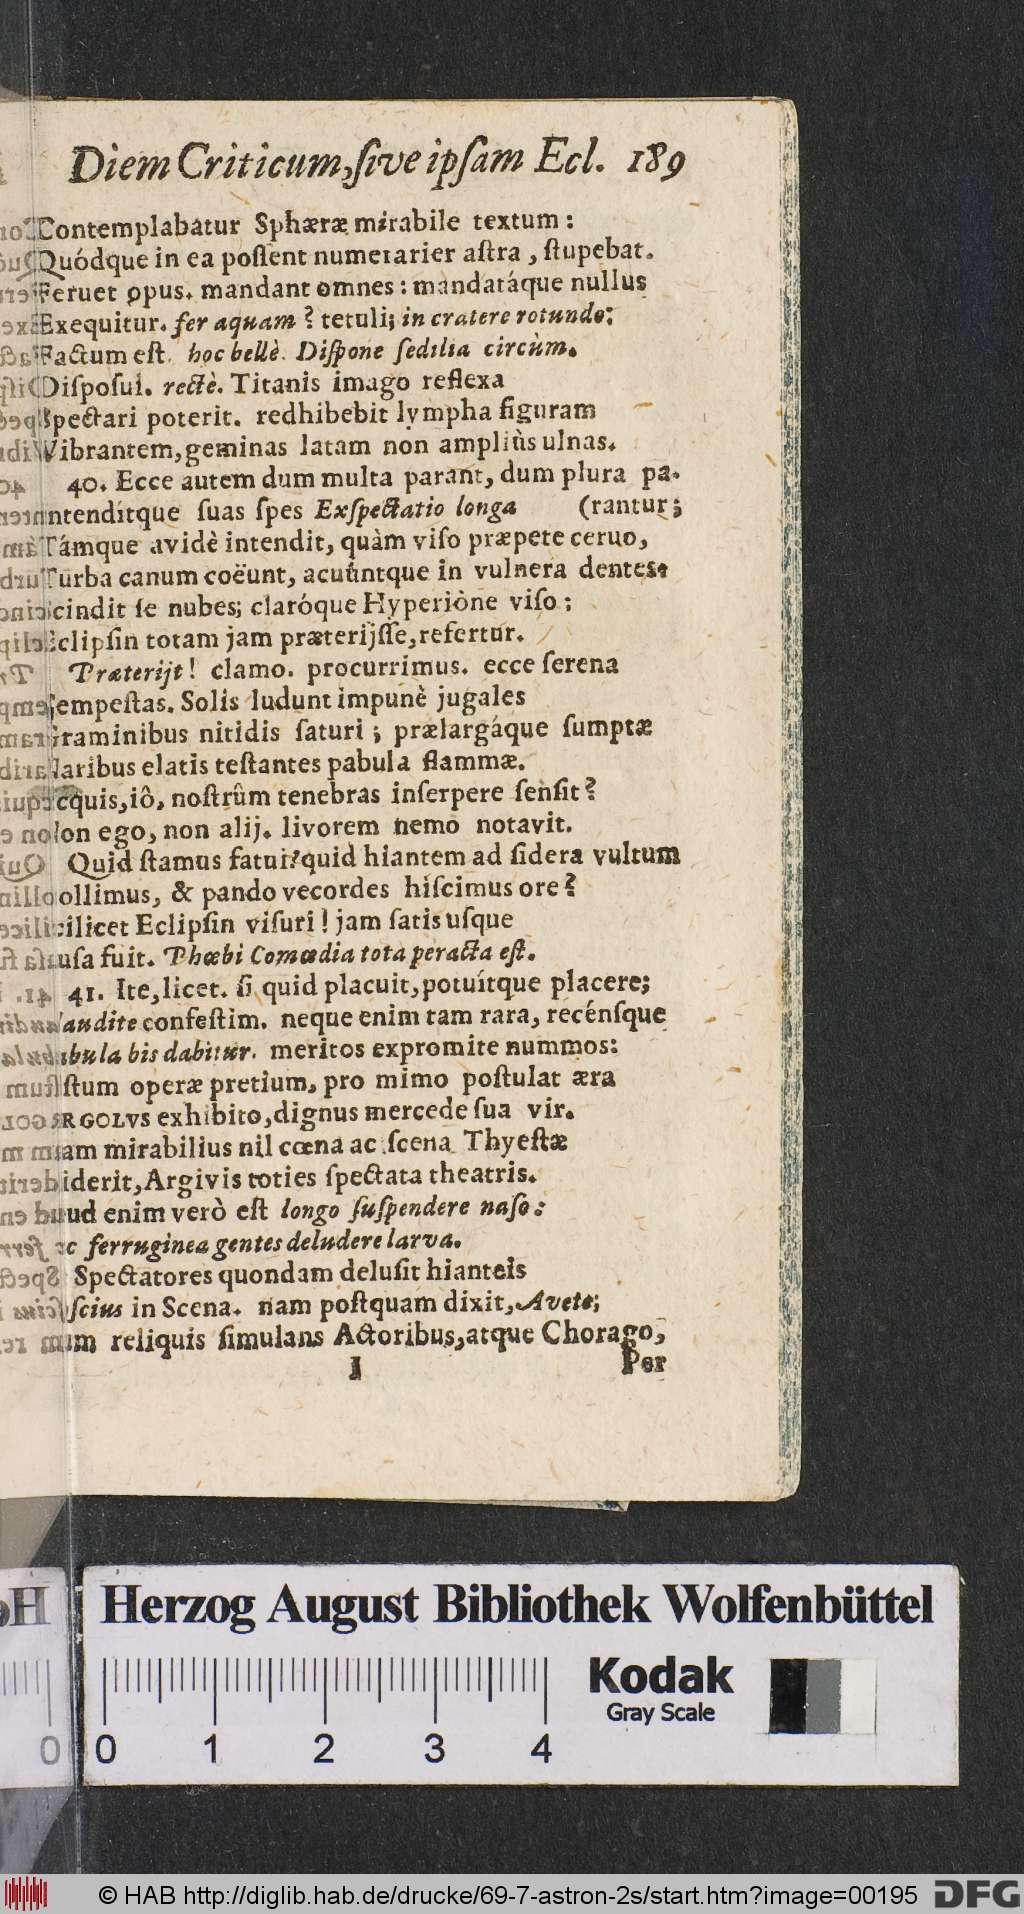 Diem Criticum, ſive ipſam Ecl. 189
Contemplabatur Sphæræ mirabile textum:
Quódque in ea poſſent numerarier aſtra, ſtupebat.
Feruet opus. mandant omnes: mandatáque nullus
Exequitur. fer aquam? tetuli; in cratere rotundo:
Factum eſt. hoc bellè. Diſpone ſedilia circùm.
Diſpoſui. rectè. Titanis imago reflexa
Spectari poterit. redhibebit lympha figuram
Vibrantem, geminas latam non ampliùs ulnas.
40. Ecce autem dum multa parant, dum plura pa-
ntenditque ſuas ſpes Exſpectatio longa (rantur;
Támque avidè intendit, quàm viſo præpete ceruo,
Turba canum coëunt, acuúntque in vulnera dentes.
cindit ſe nubes; claróque Hyperiòne viſo;
Eclipſin totam jam præterijſſe, refertur.
Præterijt! clamo. procurrimus. ecce ſerena
empeſtas. Solis ludunt impunè jugales
Graminibus nitidis ſaturi; prælargáque ſumptæ
Naribus elatis teſtantes pabula flammæ.
cquis, iô, noſtrûm tenebras inſerpere ſenſit?
Non ego, non alij. livorem nemo notavit.
Quid ſtamus fatui? quid hiantem ad ſidera vultum
ollimus, & pando vecordes hiſcimus ore?
cilicet Eclipſin viſuri! jam ſatis uſque
uſa fuit. Phœbi Comœdia tota peracta eſt.
41. Ite, licet. ſi quid placuit, potuítque placere;
laudite confeſtim. neque enim tam rara, recénſque
abula bis dabitur. meritos expromite nummos:
ſtum operæ pretium, pro mimo poſtulat æra
RGOLVS exhibito, dignus mercede ſua vir.
am mirabilius nil cœna ac ſcena Thyeſtæ
iderit, Argivis toties ſpectata theatris.
ud enim verò eſt longo ſuſpendere naſo:
c ferruginea gentes deludere larva.
Spectatores quondam deluſit hianteis
ſcius in Scena. nam poſtquam dixit, Avete;
um reliquis ſimulans Actoribus, atque Chorago,
I Per
Herzog August Bibliothek Wolfenbüttel
Kodak
Gray Scale
0 0 1 2 3 4
© HAB http://diglib.hab.de/drucke/69-7-astron-2s/start.htm?image=00195 DFG